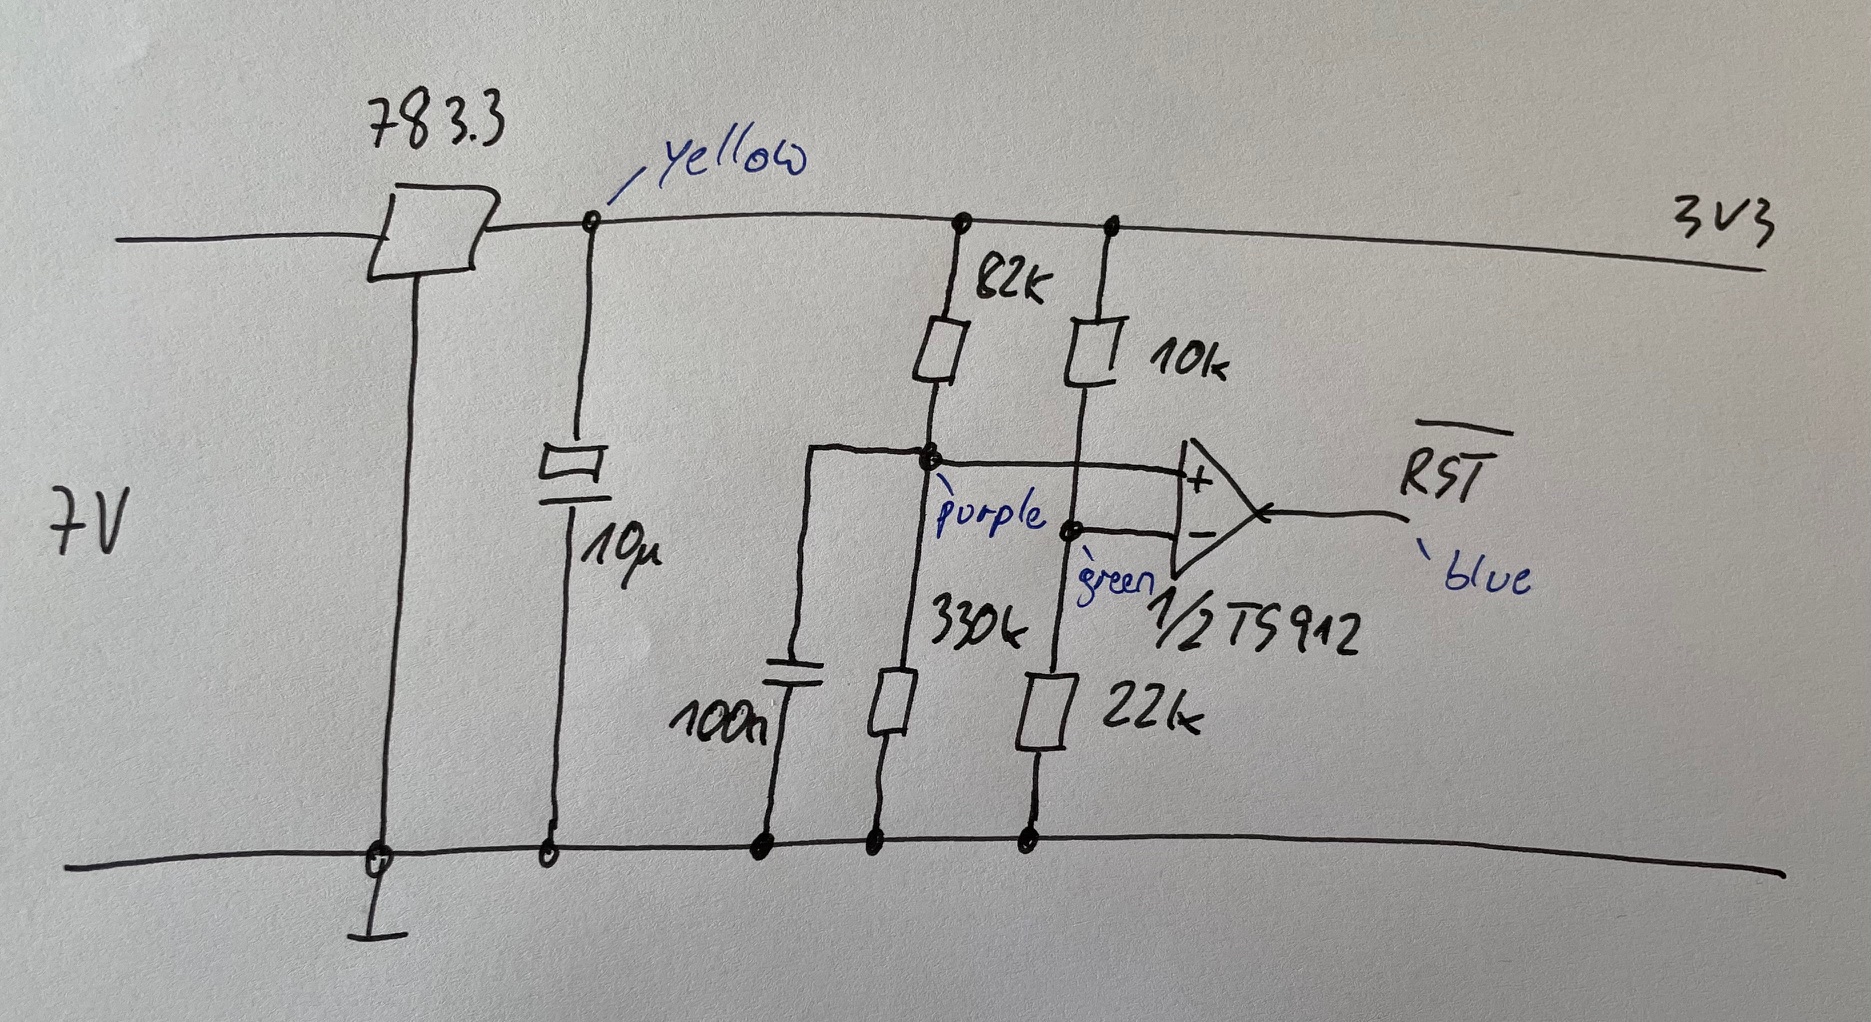 783.3
yellow
3V3
82k
10k
7V
10µ
purple
+
-
RST
green
blue
1/2 TS912
330k
100n
22k